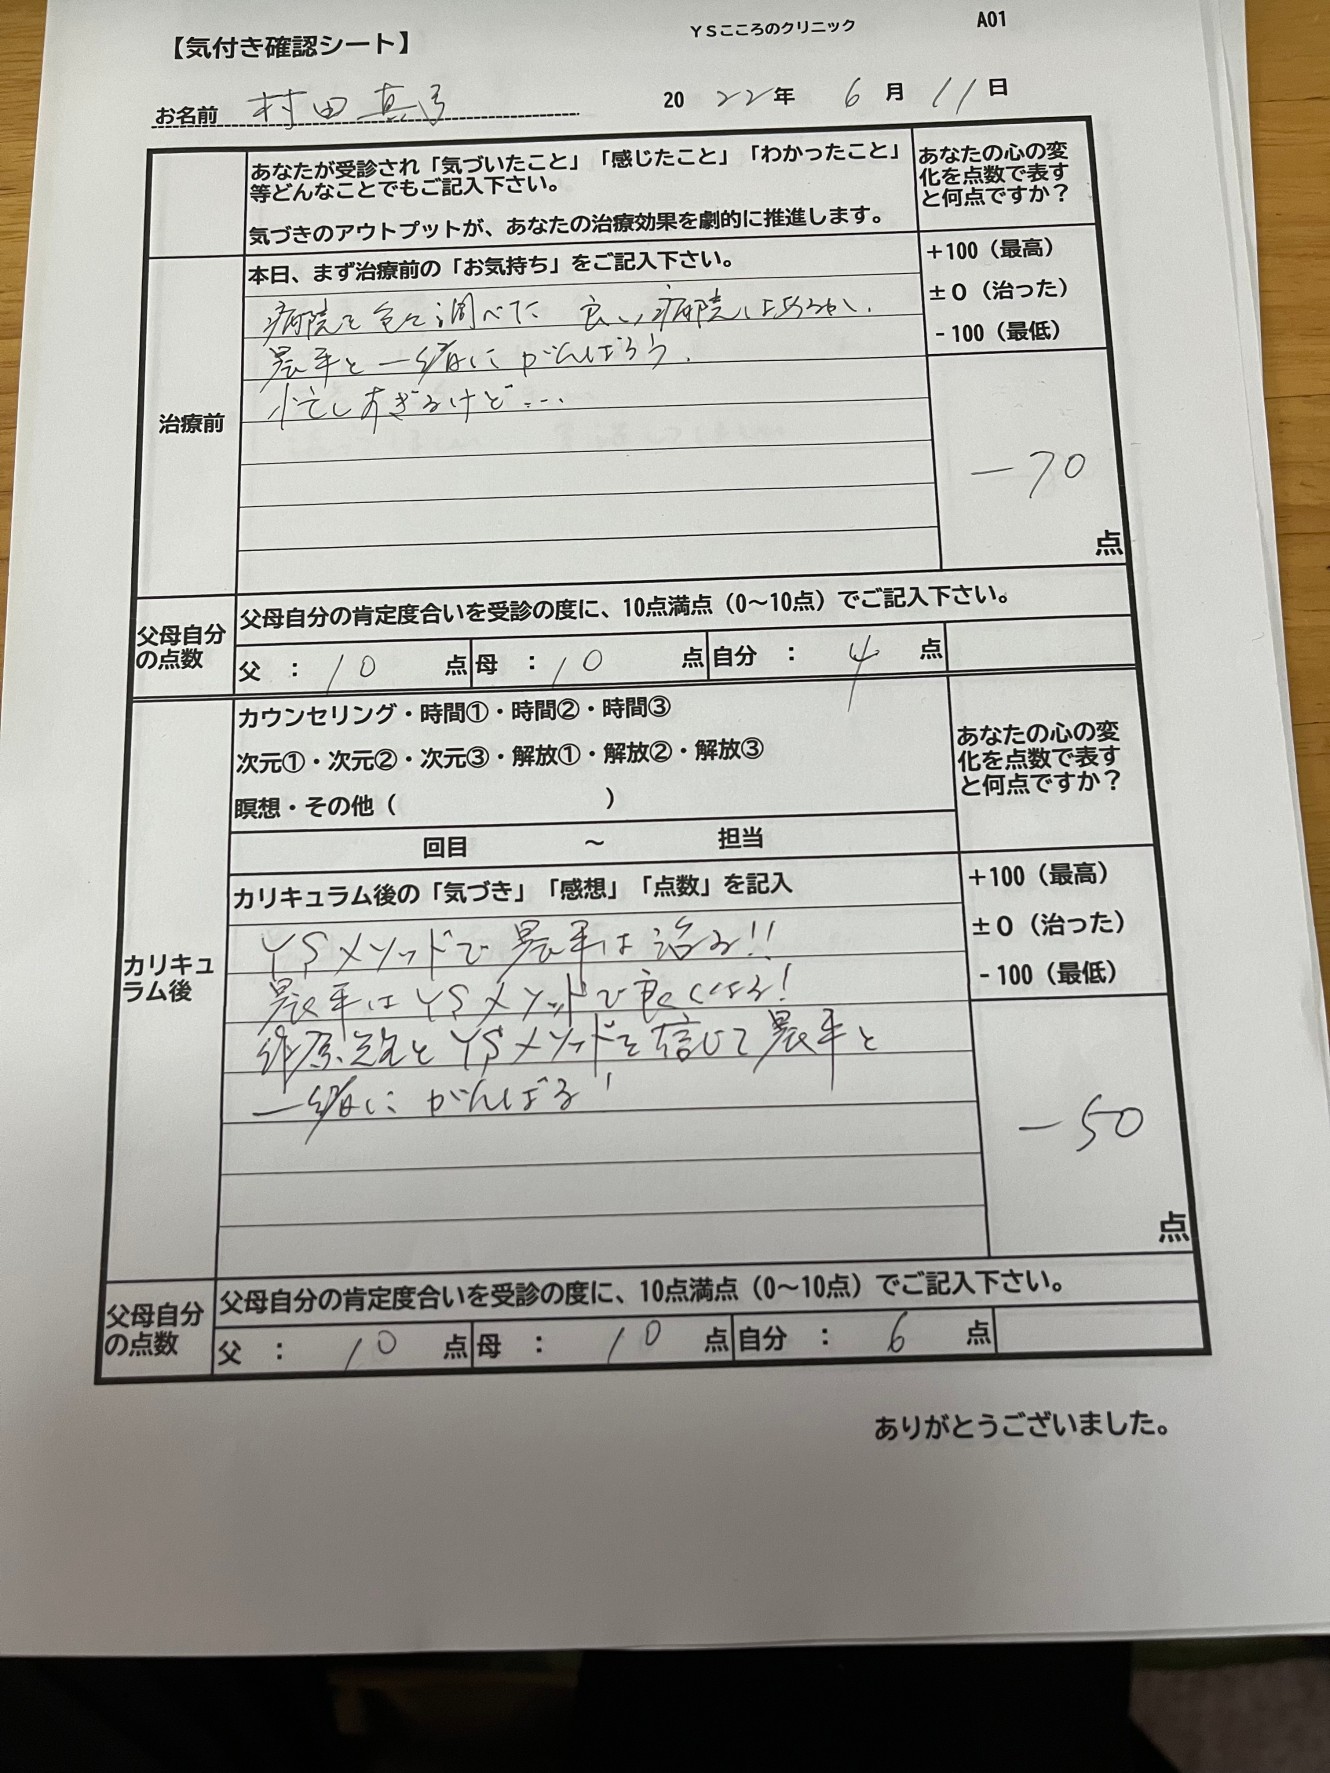 【気付き確認シート】
ＹＳこころのクリニック
A01
お名前 村田 真
20 22年 6月 11日
あなたが受診され「気づいたこと」「感じたこと」「わかったこと」
等どんなことでもご記入下さい。
気づきのアウトプットが、あなたの治療効果を劇的に推進します。
あなたの心の変
化を点数で表す
と何点ですか？
治療前
本日、まず治療前の「お気持ち」をご記入下さい。
病院を色々調べた 良い病院はあるかい.
晨平と一緒にがんばろう.
忙しすぎるけど…
+100（最高）
±０（治った）
-100（最低）
-70
点
父母自分
の点数
父母自分の肯定度合いを受診の度に、10点満点（0～10点）でご記入下さい。
父 ： 10 点 母 ： 10 点 自分 ： 4 点
カリキュ
ラム後
カウンセリング・時間①・時間②・時間③
次元①・次元②・次元③・解放①・解放②・解放③
瞑想・その他（ ）
回目 ～ 担当
あなたの心の変
化を点数で表す
と何点ですか？
カリキュラム後の「気づき」「感想」「点数」を記入
YSメソッドで晨平は治る!!
晨平はYSメソッドで良くなる!
先生とYSメソッドを信じて晨平と
一緒にがんばる!
+100（最高）
±０（治った）
-100（最低）
-50
点
父母自分
の点数
父母自分の肯定度合いを受診の度に、10点満点（0～10点）でご記入下さい。
父 ： 10 点 母 ： 10 点 自分 ： 6 点
ありがとうございました。